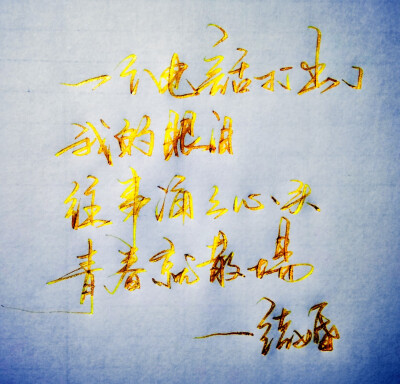 一个电话打出了
我的眼泪
往事涌上心头
青春就散场
—结婚